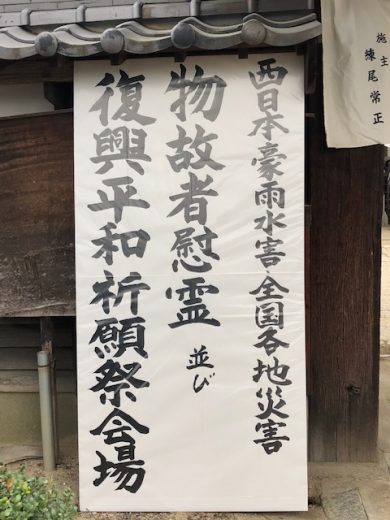 施主
練尾常正
西日本豪雨水害・全国各地災害
物故者慰霊 並び
復興平和祈願祭会場